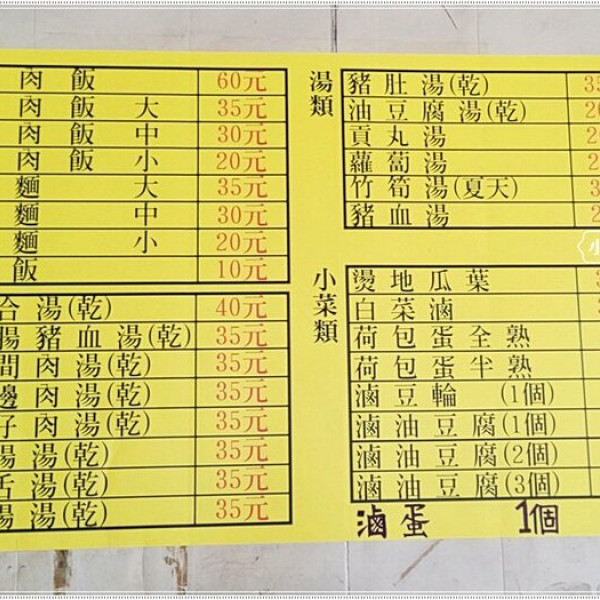 肉飯 60元
肉飯 大 35元
肉飯 中 30元
肉飯 小 20元
麵 大 35元
麵 中 30元
麵 小 20元
飯 10元
合湯(乾) 40元
腸豬血湯(乾) 35元
間肉湯(乾) 35元
邊肉湯(乾) 35元
仔肉湯(乾) 35元
湯(乾) 35元
舌湯(乾) 35元
湯(乾) 35元
湯類
豬肚湯(乾)
油豆腐湯(乾)
貢丸湯
蘿蔔湯
竹筍湯(夏天)
豬血湯
小菜類
燙地瓜葉
白菜滷
荷包蛋全熟
荷包蛋半熟
滷豆輪 (1個)
滷油豆腐(1個)
滷油豆腐(2個)
滷油豆腐(3個)
滷蛋 1個